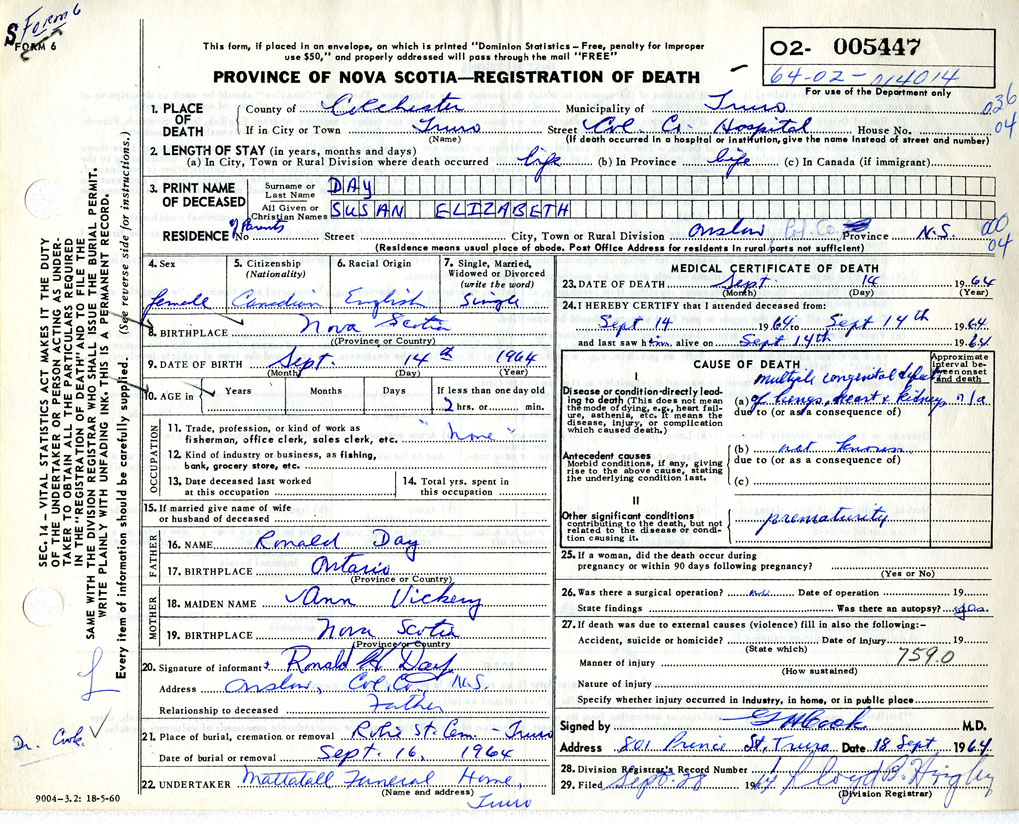 S Form 6
FORM 6
This form, if placed in an envelope, on which is printed "Dominion Statistics – Free, penalty for improper
use $50," and properly addressed will pass through the mail "FREE"
PROVINCE OF NOVA SCOTIA—REGISTRATION OF DEATH
O2- 005447
64-02-014014
For use of the Department only
036
04
1. PLACE OF DEATH
County of Colchester Municipality of Truro
If in City or Town Truro Street Col. Co. Hospital House No.
(Name) (If death occurred in a hospital or institution, give the name instead of street and number)
2. LENGTH OF STAY (in years, months and days)
(a) In City, Town or Rural Division where death occurred life (b) In Province life (c) In Canada (if immigrant)
3. PRINT NAME OF DECEASED
Surname or Last Name DAY
All Given or Christian Names SUSAN ELIZABETH
of Parents
RESIDENCE No Street City, Town or Rural Division Onslow, Col. Co., Province N.S.
000
04
(Residence means usual place of abode. Post Office Address for residents in rural parts not sufficient)
4. Sex female
5. Citizenship (Nationality) Canadian
6. Racial Origin English
7. Single, Married, Widowed or Divorced (write the word) Single
8. BIRTHPLACE Nova Scotia
(Province or Country)
9. DATE OF BIRTH Sept. 14th 1964
(Month) (Day) (Year)
10. AGE in Years Months Days If less than one day old
2 hrs. or min.
OCCUPATION
11. Trade, profession, or kind of work as
fisherman, office clerk, sales clerk, etc. "None"
12. Kind of industry or business, as fishing,
bank, grocery store, etc.
13. Date deceased last worked
at this occupation
14. Total yrs. spent in
this occupation
15. If married give name of wife
or husband of deceased
FATHER
16. NAME Ronald Day
17. BIRTHPLACE Ontario
(Province or Country)
MOTHER
18. MAIDEN NAME Ann Vickery
19. BIRTHPLACE Nova Scotia
(Province or Country)
20. Signature of informant Ronald H Day
Address Onslow, Col. Co., N.S.
Relationship to deceased Father
21. Place of burial, cremation or removal Robie St. Cem – Truro
Date of burial or removal Sept. 16, 1964
22. UNDERTAKER Mattatall Funeral Home,
(Name and address) Truro
MEDICAL CERTIFICATE OF DEATH
23. DATE OF DEATH Sept. 14 1964
(Month) (Day) (Year)
24. I HEREBY CERTIFY that I attended deceased from:
Sept 14 1964 to Sept 14th 1964
and last saw him alive on Sept 14th 1964
CAUSE OF DEATH
Approximate interval between onset and death
I
Disease or condition directly leading to death (This does not mean the mode of dying, e.g., heart failure, asthenia, etc. It means the disease, injury, or complication which caused death.)
multiple congenital defects
(a) of lungs, heart & kidneys n/a
due to (or as a consequence of)
Antecedent causes
Morbid conditions, if any, giving rise to the above cause, stating the underlying condition last.
(b) not known
due to (or as a consequence of)
(c)
II
Other significant conditions
contributing to the death, but not related to the disease or condition causing it.
prematurity
25. If a woman, did the death occur during
pregnancy or within 90 days following pregnancy?
(Yes or No)
26. Was there a surgical operation? no Date of operation 19
State findings Was there an autopsy? yes.
27. If death was due to external causes (violence) fill in also the following:-
Accident, suicide or homicide? Date of injury 19
(State which)
759.0
Manner of injury
(How sustained)
Nature of injury
Specify whether injury occurred in industry, in home, or in public place
Signed by Cook M.D.
Address 801 Prince St, Truro Date 18 Sept 1964
28. Division Registrar's Record Number
29. Filed Sept. 28 1964 Lloyd B.
(Division Registrar)
9004-3.2: 18-5-60
SEC. 14 – VITAL STATISTICS ACT MAKES IT THE DUTY
OF THE UNDERTAKER OR PERSON ACTING AS UNDERTAKER TO OBTAIN ALL THE PARTICULARS REQUIRED
IN THE "REGISTRATION OF DEATH" AND TO FILE THE
SAME WITH THE DIVISION REGISTRAR WHO SHALL ISSUE THE BURIAL PERMIT.
WRITE PLAINLY WITH UNFADING INK. THIS IS A PERMANENT RECORD.
Every item of information should be carefully supplied. (See reverse side for instructions.)
Dr. Cook